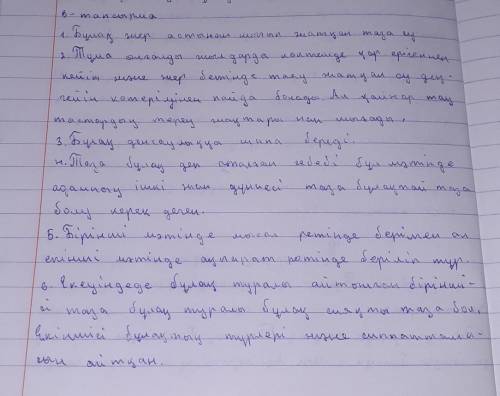 6-тапсырма
1. Бұлақ жер астынан шығып жатқан таза су
2. Тұма ылғалды жылдарда көктемде қар ерігеннен
кейін және жер бетінде тасу жатқан су дең-
гейін көтерілуінен пайда болады. Ал қайнар тау
тастардың терең жақтары нан шығады.
3. Бұлақ денсаулыққа шипа береді.
4. Таза бұлақ деп аталған себебі бұл мәтінде
адамның ішкі жан дүниесі таза бұлақтай таза
болу керек деген.
5. Бірінші мәтінде мысал ретінде берілген ал
екінші мәтінде ақпарат ретінде беріліп тұр.
6. Екеуіндеде бұлақ туралы айтылған бірінші-
сі таза бұлақ туралы бұлақ сияқты таза бол,
Екіншісі бұлақтың түрлері және сипаттама-
сын айтқан.